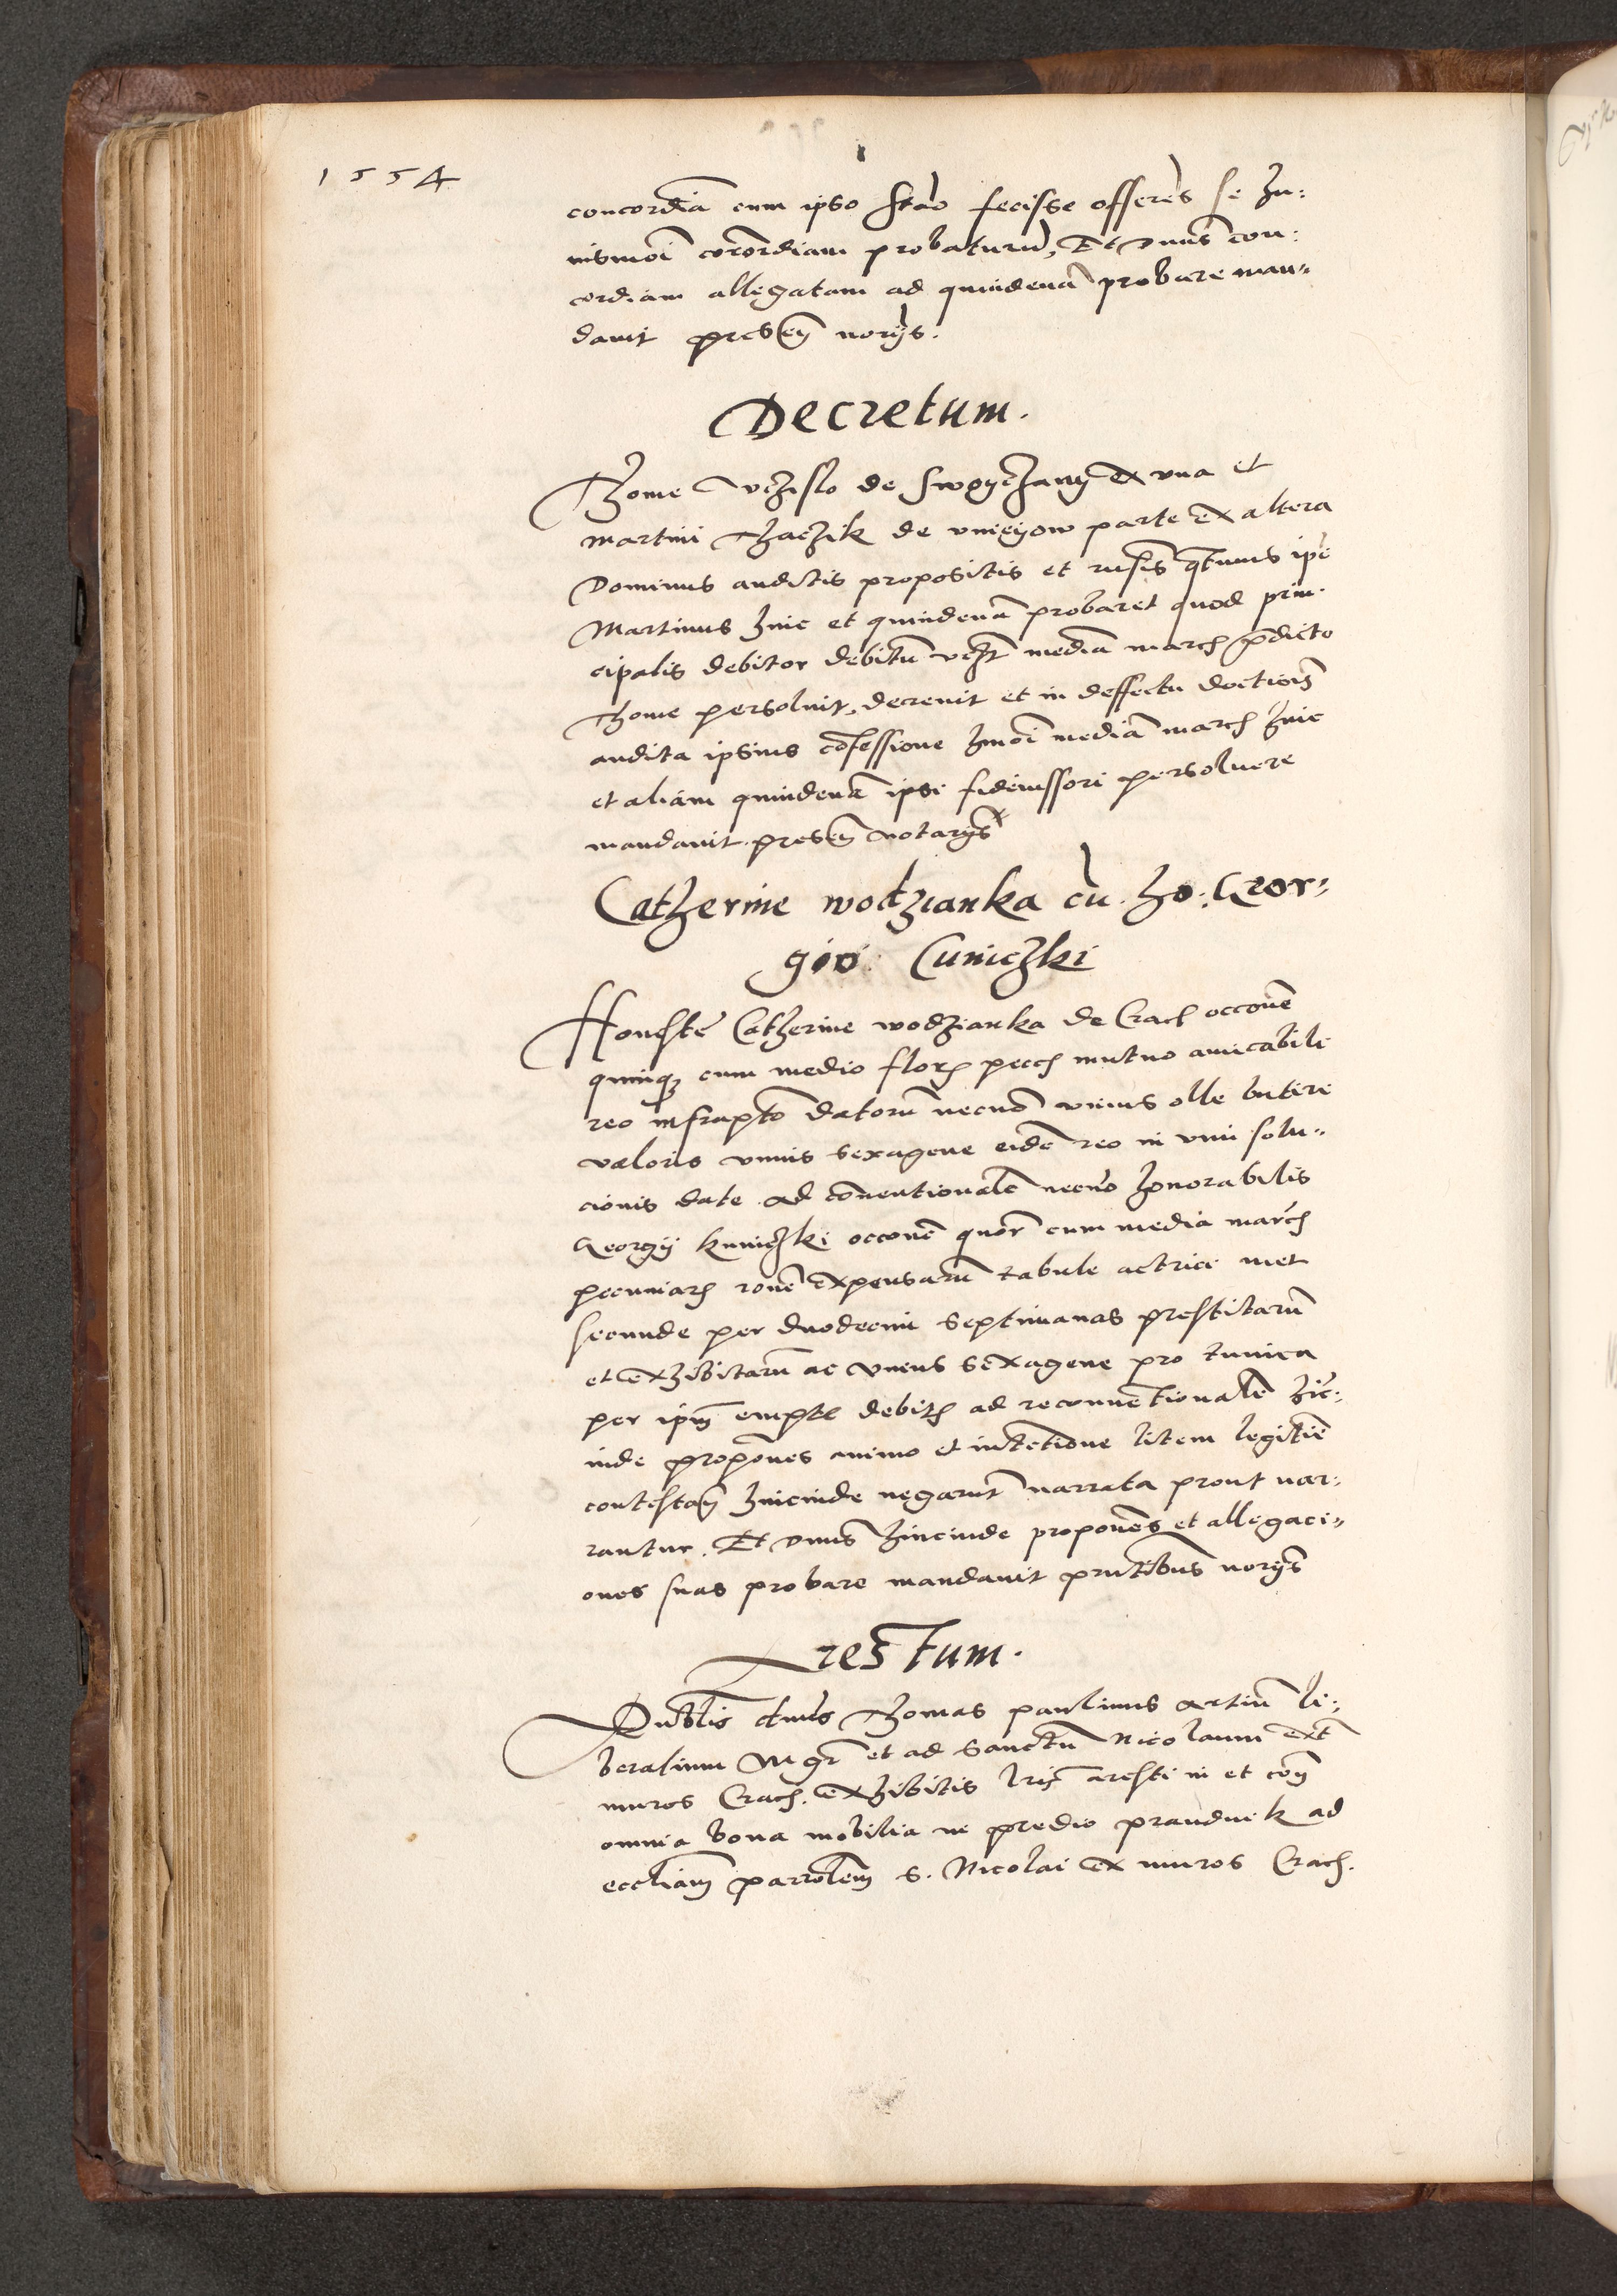 1554
concordiã cum ipso Stão fecisse offerẽs se hu:
iusmõi cõcordiam probaturũ, Et dnus con:
cordiam allegatam ad quindenã probare man„
dauit pres̃ norijs.
Decretum.
Thome vchislo de Swoychany ex vna et
martini Thaczik de vnieyow parte ex altera
Dominus auditis propositis et rñsis qtenus ipẽ
Martinus hinc et quindenã probaret quod prin.
cipalis debitor debitũ vcꝫt mediã march p̃dicto
Thome persoluit, decreuit et in deffectu doctiois
audita ipsius cõfessione hmõi mediã march hinc
et aliam quindenã ipsi fideiussori persoluere
mandauit presen̄ notarijs
Catherine wodzianka cũ ho: Geor„
gio: Cuniczki
Honeste Catherine wodzianka de Crach occõne
quinqꝫ cum medio flor pecch mutuo amicabili
reo infrapto datorũ necnõ vnius olle butiri
valoris vnius sexagene eidẽ reo in vim solu„
cionis date ad cõnentionalẽ necnõ honorabilis
Georgij kuniczki occonẽ quor cum media march
pecuniarch rõne expensarũ tabule actrici met
secunde per duodecim septimanas prestitarũ
et exhibitarũ ac vnius sexagene pro tunica
per ipm̃ empte debith ad reconuẽtionalẽ hic:
inde propões animo et intẽtione litem legitiẽ
contestañ hincinde negarũt narrata prout nar:
rantur. Et dnus hincinde proponẽs et allegaci„
ones suas probare mandauit prntibus norijs
Arestum.
Dnus Thomas paulinus artiũ li:
beralium Mgr et ad sanctũ Nicolaum ext
muros Crach. exhibitis lris aresti in et cõtra
omnia bona mobilia in predio prandnik ad
eccliam parrolem S. Nicolai ex muros Crach.